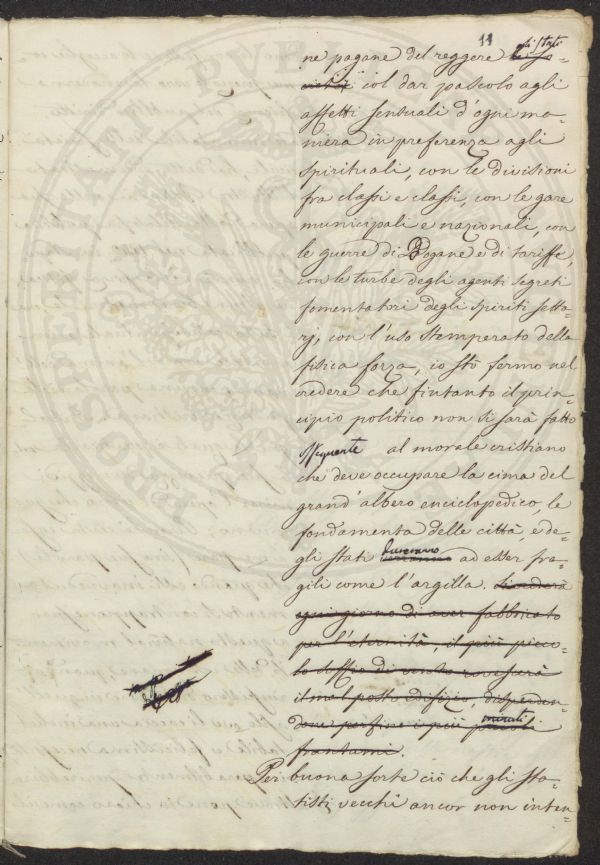 11
gli stati
ne pagane del reggere le so-
cietà col dar pascolo agli
affetti sensuali d'ogni ma-
niera in preferenza agli
spirituali, con le divisioni
fra classi e classi, con le gare
municipali e nazionali, con
le guerre di Dogane e di tariffe,
con le turbe degli agenti segreti
fomentatori degli spiriti setta-
rj, con l'uso stemperato della
fisica forza, io stò fermo nel
credere che fintanto il prin-
cipio politico non si sarà fatto
ossequente al morale cristiano
che deve occupare la cima del
grand'albero enciclopedico, le
fondamenta delle città, e de-
gli stati dureranno ad esser fra-
gili come l'argilla. Si crederà
ogni giorno di aver fabbricato
per l'eternità, il più picco-
lo soffio di vento rovescerà
il mal posto edifizio, disperden-
done perfino i più minuti
frantumi.
Per buona sorte ciò che gli sta-
tisti vecchi ancor non inten-
PVBLICAE
PROSPERITATI